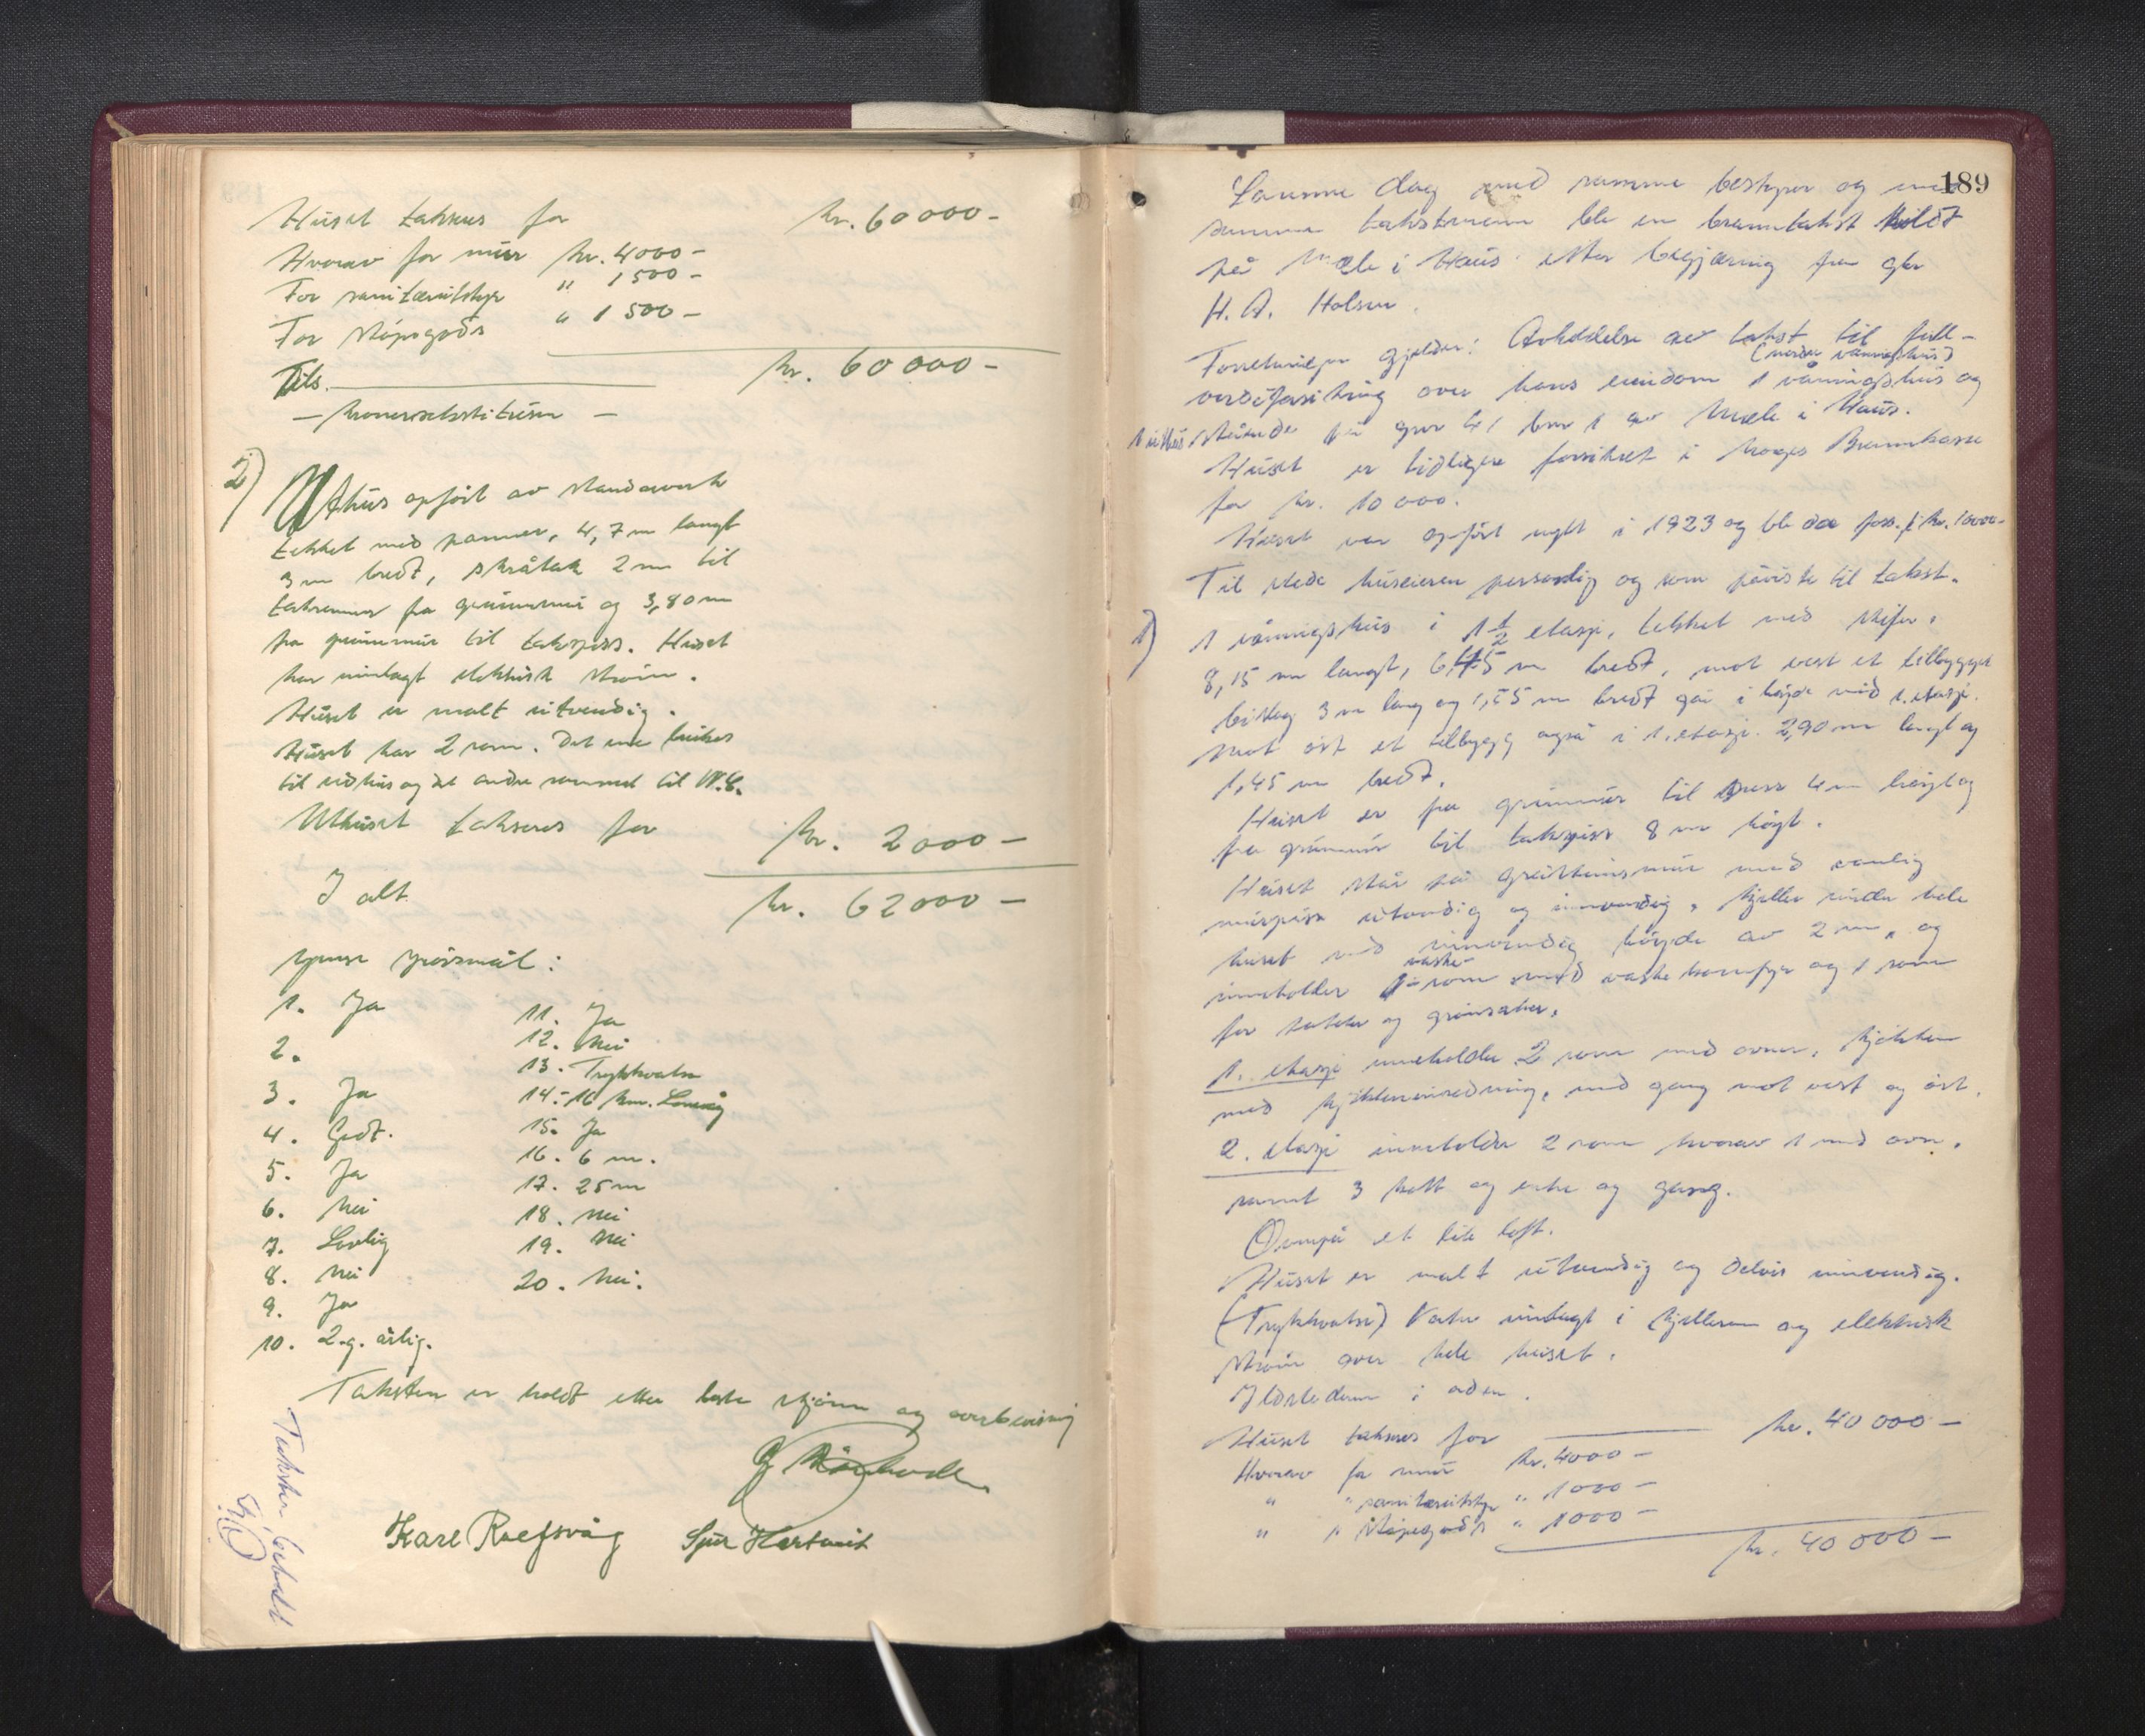 Huset takseres for kr. 60000-
Hvorav for mur kr. 4000-
For sanitærutstyr " 1500-
For støpegods " 1500-
Tils. kr. 60 000-
2) Uthus opført av standerverk
tekket med panner, 4,7 m langt
3 m bredt, skråtak 2 m til
takrenner fra grunnmur og 3,80 m
fra grunnmur til takspiss. Huset
har innlagt elektrisk strøm.
Huset er malt utvendig.
Huset har 2 rom. Det ene brukes
til vedhus og det andre rommet til W.C.
Uthuset takseres for kr. 2000-
I alt kr. 62000-
spørsmål:
1. Ja
2.
3. Ja
4. Godt.
5. Ja
6. Nei
7. Lovlig
8. Nei
9. Ja
10. 2.g. årlig.
11. Ja
12. Nei
13. Trykkvatn
14. 16 km.
15. Ja
16. 6 m.
17. 25 m
18. Nei
19. Nei
20. Nei.
Taksten er holdt etter beste skjønn og overbevisning
Karl Roefsvåg
189
Samme dag med samme bestyrer og med
samme takstmenn ble en branntakst holdt
på Mæle i Haus etter begjæring fra gbr
H. A. Holsen.
Forretningen gjelder: Avholdelse av takst til full-
(neder våningshus)
verdiforsikring over hans eiendom 1 våningshus og
1 uthus stående på gnr 41 bnr 1 av Mæle i Haus.
Huset er tidligere forsikret i Norges Brannkasse
for kr. 10 000.
Huset var opført nytt i 1923 og ble da fors. f. kr. 10000-
Til stede huseieren personlig og som påviste til takst.
1) 1 våningshus i 1 1/2 etasje, tekket med skifer.
8,15 m langt, 6,45 m bredt, mot vest et tilbygget
bislag 3 m lang og 1,55 m bredt går i høyde med 1. etasje.
Mot øst et tilbygg også i 1. etasje. 2,90 m langt og
1,45 m bredt.
Huset er fra grunnmur til gess 4 m høgt og
fra grunnmur til takspiss 8 m høgt.
Huset står på gråsteinsmur med vanlig
murpuss utvendig og innvendig, kjeller under hele
huset med innvendig høyde av 2 m, og
vaske-
inneholder 1 rom med vaskekomfyr og 1 rom
for poteter og grønsaker.
1. etasje inneholder 2 rom med ovner, kjøkken
med kjøkkeninnredning, med gang mot vest og øst.
2. etasje inneholder 2 rom hvorav 1 med ovn.
samt 3 kott og gang.
Ovenpå et lite loft.
Huset er malt utvendig og delvis innvendig.
(Trykkvatn) Vatn innlagt i kjelleren og elektrisk
strøm over hele huset.
Ildstedene i orden.
Huset takseres for kr. 40 000-
Hvorav for mur kr. 4000-
" " sanitærutstyr " 1000-
" " støpegods " 1000-
kr. 40 000-